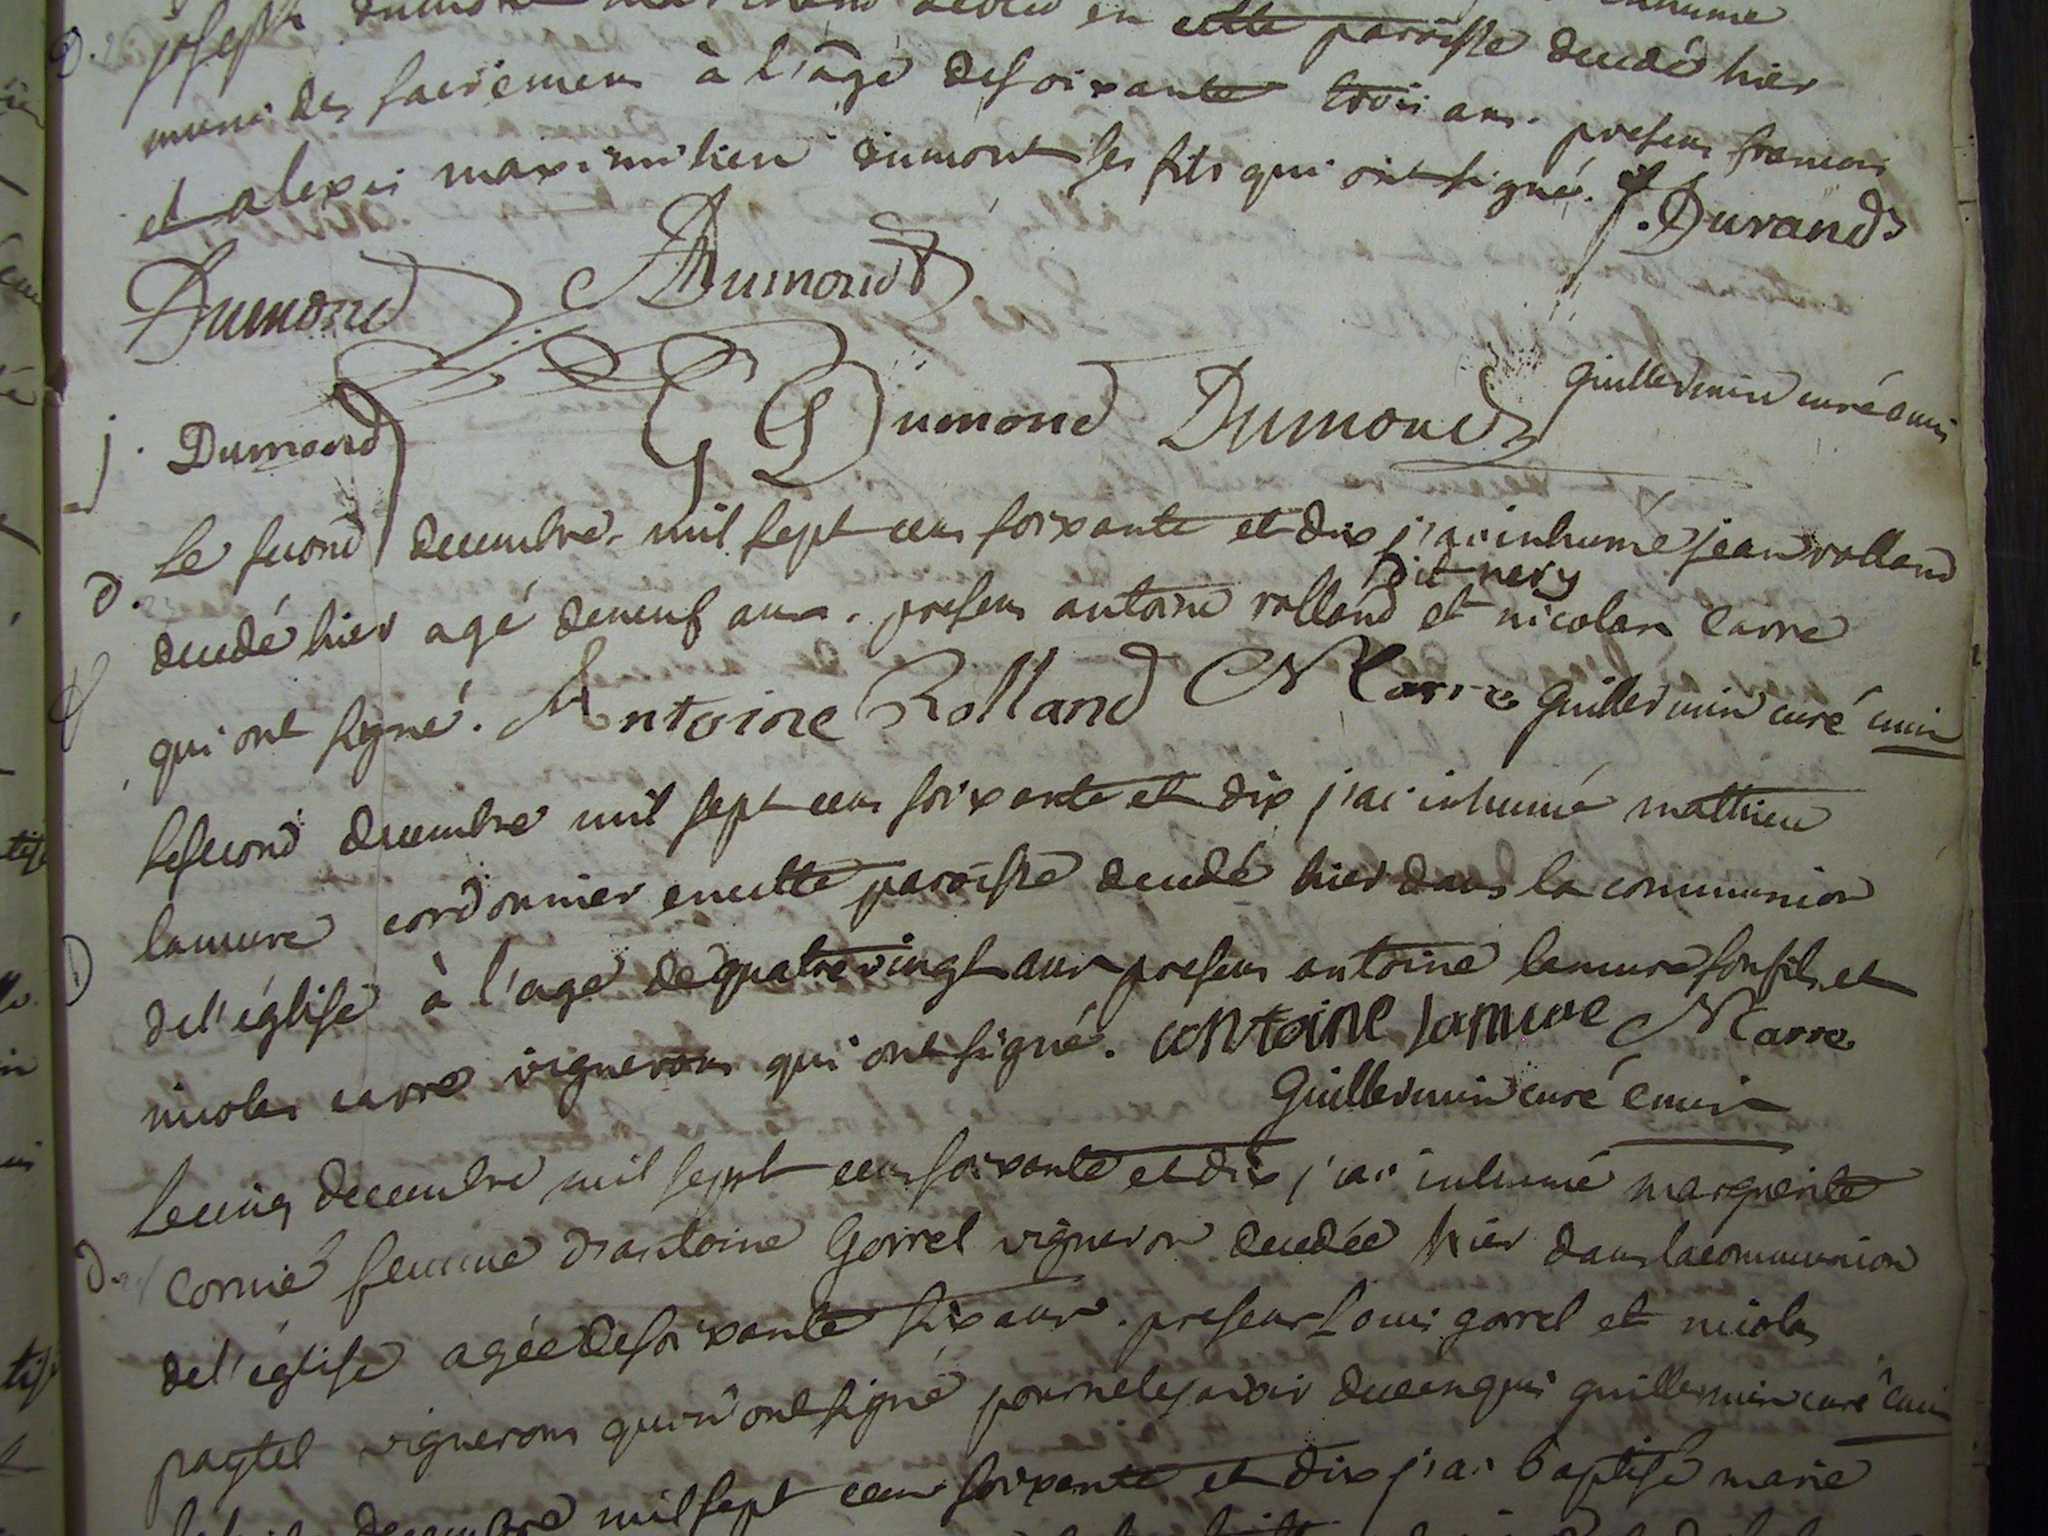 joseph dumont marchand en cette paroisse decedé hier
muni des sacremens à l'âge de soixante trois ans. presens francois
et alexis maximilien dumont ses fils qui ont signé. f. Durand
Dumond ADumond
guillermin curé
j. Dumond G Dumond Dumond
d. le second decembre mil sept cens soixante et dix j'ai inhumé jean rolland
dit nery
decedé hier agé de neuf ans. presens antoine rolland et nicolas carre
qui ont signé. Antoine Rolland N Carre guillermin curé
le second decembre mil sept cens soixante et dix j'ai inhumé mathieu
lamure cordonnier en cette paroisse decedé hier dans la communion
de l'église à l'age de quatre vingt ans presens antoine lamure son fils et
nicolas carre vignerons qui ont signé. antoine lamure N Carre
Guillermin curé
le cinq decembre mil sept cens soixante et dix j'ai inhumé marguerite
d. cornié femme d'antoine Gorrel vigneron decedée hier dans la communion
de l'église agée de soixante six ans. presens Louis gorrel et nicolas
paqtel vignerons qui n'ont signé pour ne le savoir de ce enquis guillermin curé
decembre mil sept cens soixante et dix j'ai baptisé marie